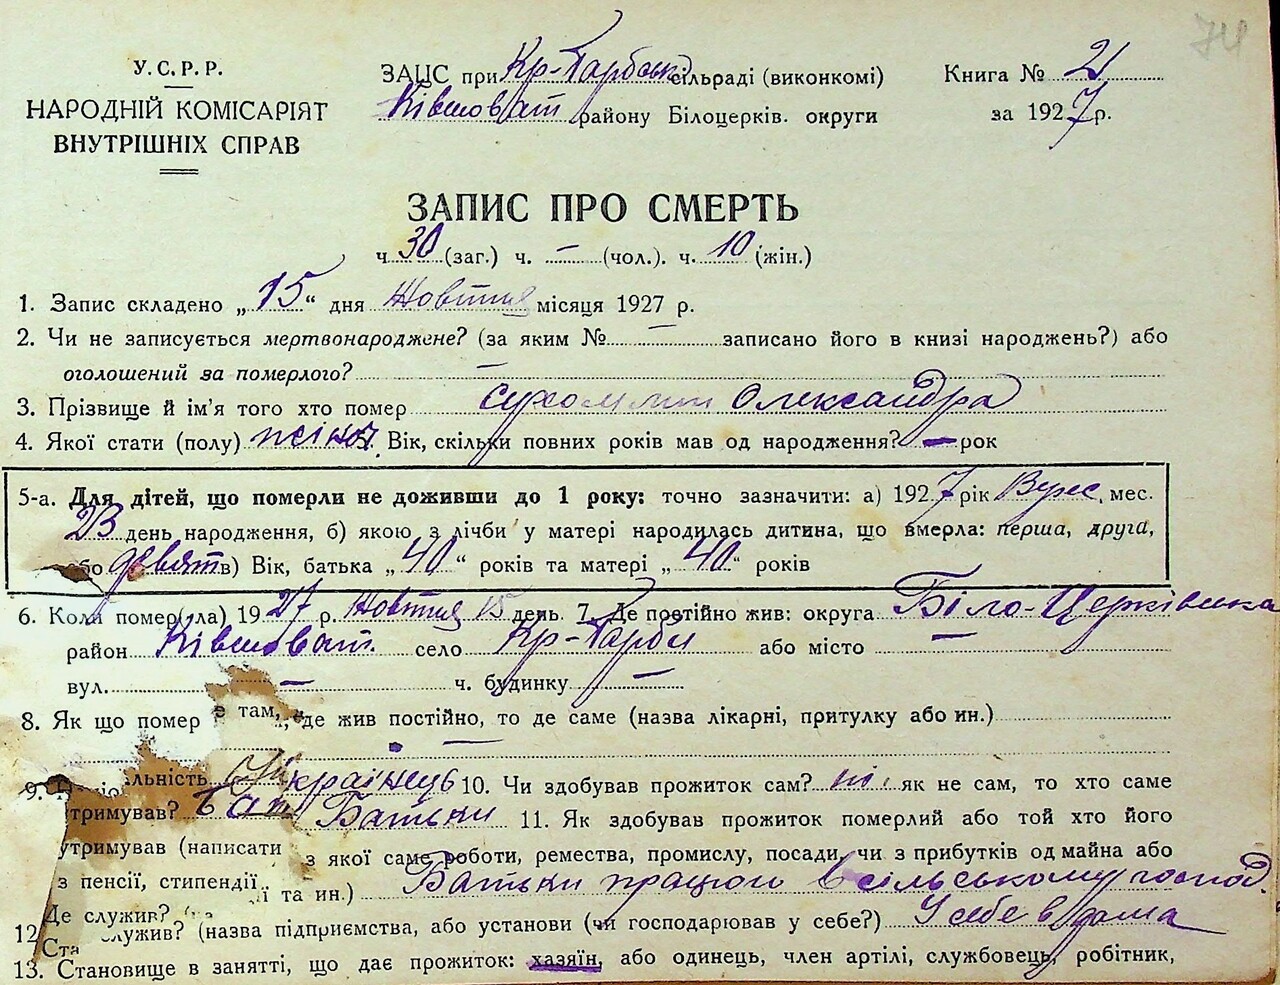 74
У.С.Р.Р.
НАРОДНІЙ КОМІСАРІЯТ
ВНУТРІШНІХ СПРАВ
ЗАГС при Кр-Гарбськ сільраді (виконкомі)
Ківшоват району Білоцерків. округи
Книга № 2
за 1927 р.
ЗАПИС ПРО СМЕРТЬ
ч. 30 (заг.) ч. – (чол.). ч. 10 (жін.)
1. Запис складено „15“ дня Жовтня місяця 1927 р.
2. Чи не записується мертвонароджене? (за яким № – записано його в книзі народжень?) або
оголошений за померлого? –
3. Прізвище й ім'я того хто помер Сухомлин Олександра
4. Якої стати (полу) жіноч. Вік, скільки повних років мав од народження? – рок
5-а. Для дітей, що померли не доживши до 1 року: точно зазначити: а) 1927 рік Верес. мес.
23 день народження, б) якою з лічби у матері народилась дитина, що вмерла: перша, друга,
або девят в) Вік, батька „40“ років та матері „40“ років
6. Коли помер(ла) 1927 р. Жовтня 15 день. 7. Де постійно жив: округа Біло-Церківска
район Ківшоват. село Кр-Гарби або місто –
вул. – ч. будинку –
8. Як що помер е там, де жив постійно, то де саме (назва лікарні, притулку або ин.)
–
9. альність Українець 10. Чи здобував прожиток сам? ні як не сам, то хто саме
тримував? Бат Батьки 11. Як здобував прожиток померлий або той хто його
утримував (написати з якої саме роботи, ремества, промислу, посади, чи з прибутків од майна або
з пенсії, стипендії та ин.) Батьки працюю в сільському господ.
Де служив?
12. служив? (назва підприємства, або установи (чи господарював у себе?) У себе в дома
Ста
13. Становище в занятті, що дає прожиток: хазяїн, або одинець, член артілі, службовець, робітник,